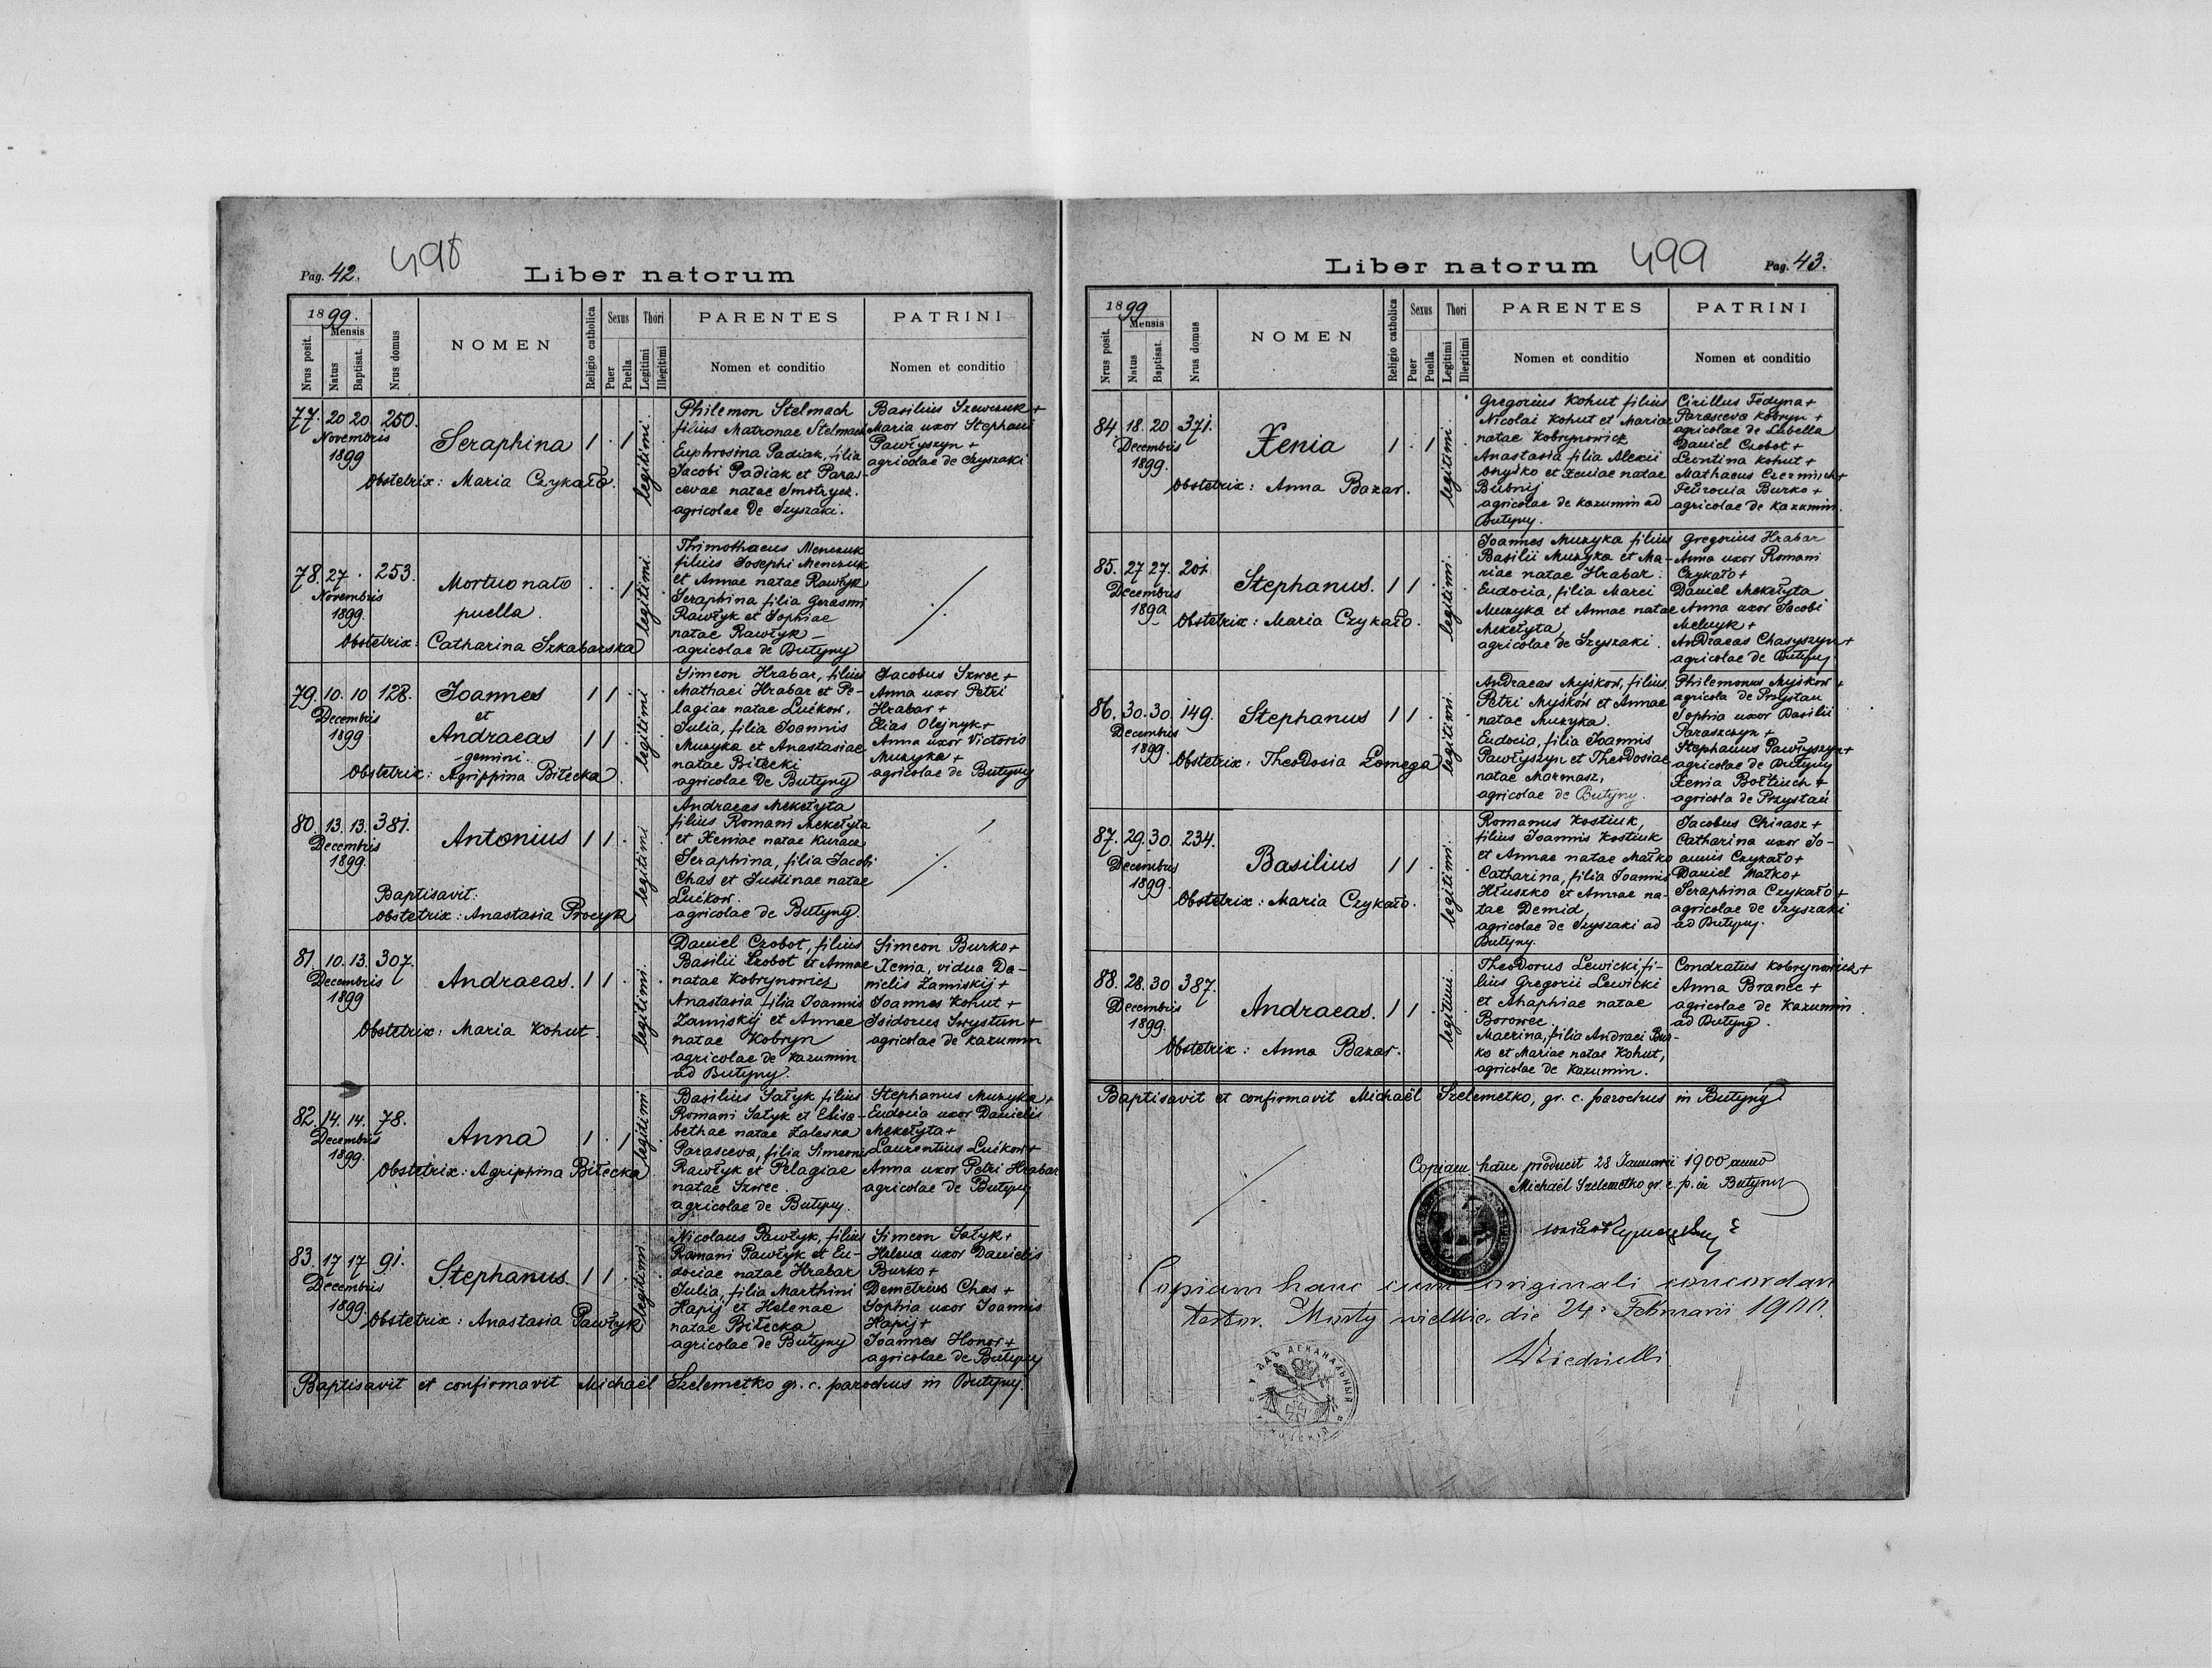 Pag. 42.
498
Liber natorum
1899.
Mensis
Nrus posit.
Natus
Baptisat.
Nrus domus
NOMEN
Religio catholica
Sexus
Puer
Puella
Thori
Legitimi
Illegitimi
PARENTES
Nomen et conditio
PATRINI
Nomen et conditio
77. 20 20 250.
Novembris
1899
Seraphina 1 . 1
legitimi.
Obstetrix: Maria Czykało.
Philemon Stelmach
filius Matronae Stelmach
Euphrosina Padiak, filia
Jacobi Padiak et Paras-
cevae natae Smotrycz.
agricolae de Szyszaki.
Basilius Szewczuk +
Maria uxor Stephani
Pawłyszyn +
agricolae de Szyszaki
78. 27 . 253.
Novembris
1899.
Mortuo nato . . 1
puella.
legitimi.
Obstetrix: Catharina Szkabarska
Thimothaeus Menczuk
filius Josephi Menczuk
et Annae natae Rawłyk
Seraphina filia Gerasmi
Rawłyk et Sophiae
natae Rawłyk –
agricolae de Butyny
79. 10. 10 128.
Decembris
1899
Joannes 1 1 .
et
Andraeas 1 1 .
gemini.
legitimi
Obstetrix: Agrippina Biłecka.
Simeon Hrabar, filius
Mathaei Hrabar et Pe-
lagiae natae Lućkow,
Julia, filia Joannis
Muzyka et Anastasiae
natae Biłecki
agricolae de Butyny
Jacobus Szwec +
Anna uxor Petri
Hrabar +
Elias Olejnyk +
Anna uxor Victoris
Muzyka +
agricolae de Butyny
80. 13. 13. 381.
Decembris
1899.
Antonius 1 1 .
legitimi
Baptisavit.
Obstetrix: Anastasia Procyk
Andraeas Mekełyta
filius Romani Mekełyta
et Xeniae natae Kuracz
Seraphina, filia Jacobi
Chas et Justinae natae
Lućkow.
agricolae de Butyny.
81. 10. 13. 307.
Decembris
1899
Andraeas. 1 1 .
legitimi.
Obstetrix: Maria Kohut.
Daniel Czobot, filius
Basilii Czobot et Annae
natae Kobrynowicz
Anastasia filia Joannis
Zamiskij et Annae
natae Kobryn
agricolae de Kazumin
ad Butyny.
Simeon Burko +
Xenia, vidua Da-
nielis Zamiskij +
Joannes Kohut +
Isidorus Swystun +
agricolae de Kazumin
82. 14. 14. 78.
Decembris
1899.
Anna 1 . 1
legitimi
Obstetrix: Agriphina Biłecka
Basilius Sałyk filius
Romani Sałyk et Elisa-
bethae natae Zaleska
Parasceva, filia Simeonis
Rawłyk et Pelagiae
natae Szwec.
agricolae de Butyny.
Stephanus Muzyka +
Eudocia uxor Danielis
Mekełyta +
Laurentius Lućkow +
Anna uxor Petri Hrabar
agricolae de Butyny
83. 17 17 91.
Decembris
1899.
Stephanus 1 1 .
legitimi.
Obstetrix: Anastasia Pawłyk
Nicolaus Pawłyk, filius
Romani Pawłyk et Eu-
dociae natae Hrabar
Julia, filia Marthini
Hapij et Helenae
natae Biłecka
agricolae de Butyny
Simeon Sałyk +
Helena uxor Danielis
Burko +
Demetrius Chas +
Sophia uxor Joannis
Hapij +
Joannes Honor +
agricolae de Butyny
Baptisavit et confirmavit Michaël Szelemetko gr. c. parochus in Butyny.
Liber natorum
499
Pag. 43.
1899
Mensis
Nrus posit.
Natus
Baptisat.
Nrus domus
NOMEN
Religio catholica
Sexus
Puer
Puella
Thori
Legitimi
Illegitimi
PARENTES
Nomen et conditio
PATRINI
Nomen et conditio
84. 18. 20 371.
Decembris
1899.
Xenia 1 . 1
legitimi
Obstetrix: Anna Bazar.
Gregorius Kohut filius
Nicolai Kohut et Mariae
natae Kobrynowicz
Anastasia filia Alexii
Onyśko et Xeniae natae
Bubnij
agricolae de Kazumin ad
Butyny.
Cirillus Fedyna +
Parasceva Kobryn +
agricolae de Lubella
Daniel Czobot +
Leontina Kohut +
Mathaeus Czermisch +
Fevronia Burko +
agricolae de Kazumin.
85. 27 27. 201
Decembris
1899
Stephanus. 1 1 .
legitimi.
Obstetrix: Maria Czykało.
Joannes Muzyka filius
Basilii Muzyka et Ma-
riae natae Hrabar.
Eudocia, filia Marci
Muzyka et Annae natae
Mekełyta,
agricolae de Szyszaki.
Gregorius Hrabar
Anna uxor Romani
Czykało +
Daniel Mekełyta
Anna uxor Jacobi
Melnyk +
Andraeas Chasyszyn +
agricolae de Butyny.
86. 30. 30. 149.
Decembris
1899.
Stephanus 1 1 .
legitimi.
Obstetrix: Theodosia Łomega
Andraeas Myśkow, filius
Petri Myśków et Annae
natae Muzyka.
Eudocia, filia Joannis
Pawłyszyn et Theodosiae
natae Marmasz,
agricolae de Butyny.
Philemonus Myśkow +
agricola de Przystań
Sophia uxor Basilii
Paraszczyn +
Stephanus Pawłyszyn +
agricolae de Butyny
Xenia Bołtiuch +
agricola de Przystań
87. 29. 30. 234.
Decembris
1899.
Basilius 1 1 .
legitimi.
Obstetrix: Maria Czykało.
Romanus Kostiuk,
filius Joannis Kostiuk
et Annae natae Małko
Catharina, filia Joannis
Hłuszko et Annae na-
tae Demid,
agricolae de Szyszaki ad
Butyny.
Jacobus Chirasz +
Catharina uxor Jo-
annis Czykało +
Daniel Małko +
Seraphina Czykało +
agricolae de Szyszaki
ad Butyny.
88. 28. 30 387.
Decembris
1899.
Andraeas. 1 1 .
legitimi.
Obstetrix: Anna Bazar.
Theodorus Lewicki fi-
lius Gregorii Lewicki
et Ahaphiae natae
Borowec.
Macrina, filia Andraei Bur-
ko et Mariae natae Kohut,
agricolae de Kazumin.
Condratus Kobrynowicz +
Anna Branec +
agricolae de Kazumin
ad Butyny.
Baptisavit et confirmavit Michaël Szelemetko, gr. c. parochus in Butyny
Copiam hanc producit 28 Januarii 1900 anno
Michaël Szelemetko gr. c. p. in Butyny
Copiam hanc cum originali concordan
testor. Mosty wielkie die 24 Februarii 1900.